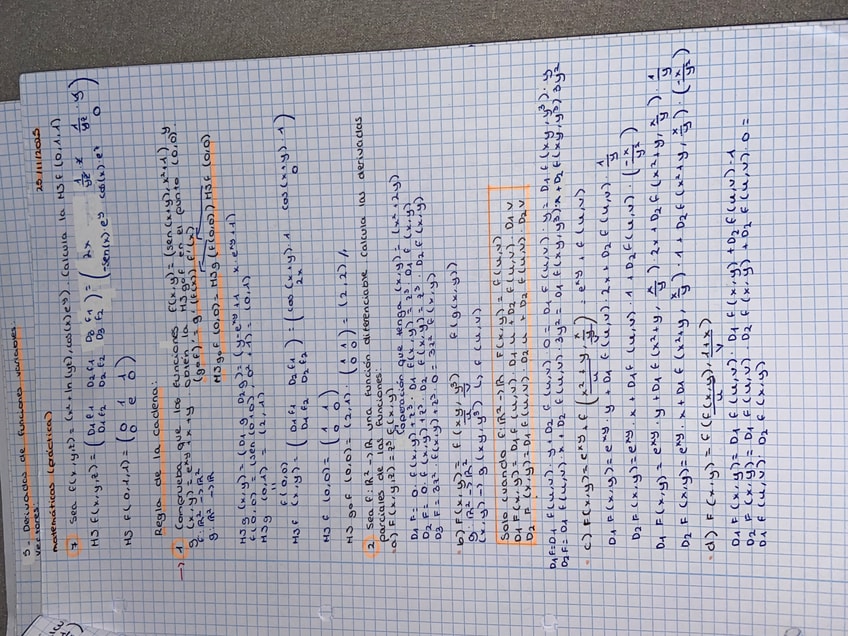 3.- Derivadas de funciones variables
vectores.
20/11/2025
matemáticas (práctica)
7 Sea f(x,y,z) = (x²+ln(yz), cos(x)e^y). Calcula la MJ f(0,1,1)
MJ f(x,y,z) = ( D1 f1 D2 f1 D3 f1 ) = ( 2x 1/yz · z 1/yz · y )
( D1 f2 D2 f2 D3 f2 ) ( -sen(x)·e^y cos(x)·e^y 0 )
MJ f(0,1,1) = ( 0 1 1 )
( 0 e 0 )
Regla de la cadena:
→ 1 Comprueba que las funciones f(x,y) = (sen(x+y), x²+1) y
g(x,y) = e^xy + x + y obtén la MJ g∘f en el punto (0,0).
f: R² → R² (g∘f)' = g'(f(x)) · f'(x)
g: R² → R MJ g∘f (0,0) = MJ g(f(0,0)) · MJ f(0,0)
MJ g(x,y) = (D1 g D2 g) = (y·e^xy+1 x·e^xy+1)
f(0,0) = (sen(0,0), 0²+1) = (0,1)
MJ g(0,1) = (2,1)
f(0,0)
MJ f(x,y) = ( D1 f1 D2 f1 ) = ( cos(x+y)·1 cos(x+y)·1 )
( D1 f2 D2 f2 ) ( 2x 0 )
MJ f(0,0) = ( 1 1 )
( 0 0 )
MJ g∘f (0,0) = (2,1) · ( 1 1 ) = (2,2) //
( 0 0 )
2 Sea f: R² → R una función diferenciable calcula las derivadas
parciales de las funciones:
a) F(x,y,z) = z³ f(x,y) (operación que tenga (x,y) = (x²+2y)
D1 F = 0·f(x,y) + z³· D1 f(x,y) = z³ D1 f(x,y)
D2 F = 0·f(x,y) + z³· D2 f(x,y) = z³ D2 f(x,y)
D3 F = 3z²· f(x,y) + z³· 0 = 3z² f(x,y)
b) F(x,y) = f(xy, y³) f(g(x,y))
g: R² → R²
(x,y) → g(xy, y³) ↳ f(u,v)
Solo cuando f: R² → R F(x,y) = f(u,v)
D1 F(x,y) = D1 f(u,v) · D1 u + D2 f(u,v) · D1 v
D2 F(x,y) = D1 f(u,v) · D2 u + D2 f(u,v) · D2 v
D1 F = D1 f(u,v) · y + D2 f(u,v) · 0 = D1 f(u,v) · y = D1 f(xy, y³) · y
D2 F = D1 f(u,v) · x + D2 f(u,v) · 3y² = D1 f(xy, y³) · x + D2 f(xy, y³) 3y²
c) F(x,y) = e^xy + f(x²+y, x/y) e^xy + f(u,v)
D1 F(x,y) = e^xy · y + D1 f(u,v) · 2x + D2 f(u,v) · 1/y
D2 F(x,y) = e^xy · x + D1 f(u,v) · 1 + D2 f(u,v) · (-x/y²)
D1 F(x,y) = e^xy · y + D1 f(x²+y, x/y) · 2x + D2 f(x²+y, x/y) · 1/y
D2 F(x,y) = e^xy · x + D1 f(x²+y, x/y) · 1 + D2 f(x²+y, x/y) · (-x/y²)
d) F(x,y) = f(f(x,y), 1+x)
D1 F(x,y) = D1 f(u,v) · D1 f(x,y) + D2 f(u,v) · 1
D2 F(x,y) = D1 f(u,v) · D2 f(x,y) + D2 f(u,v) · 0 =
D1 f(u,v) · D2 f(x,y)